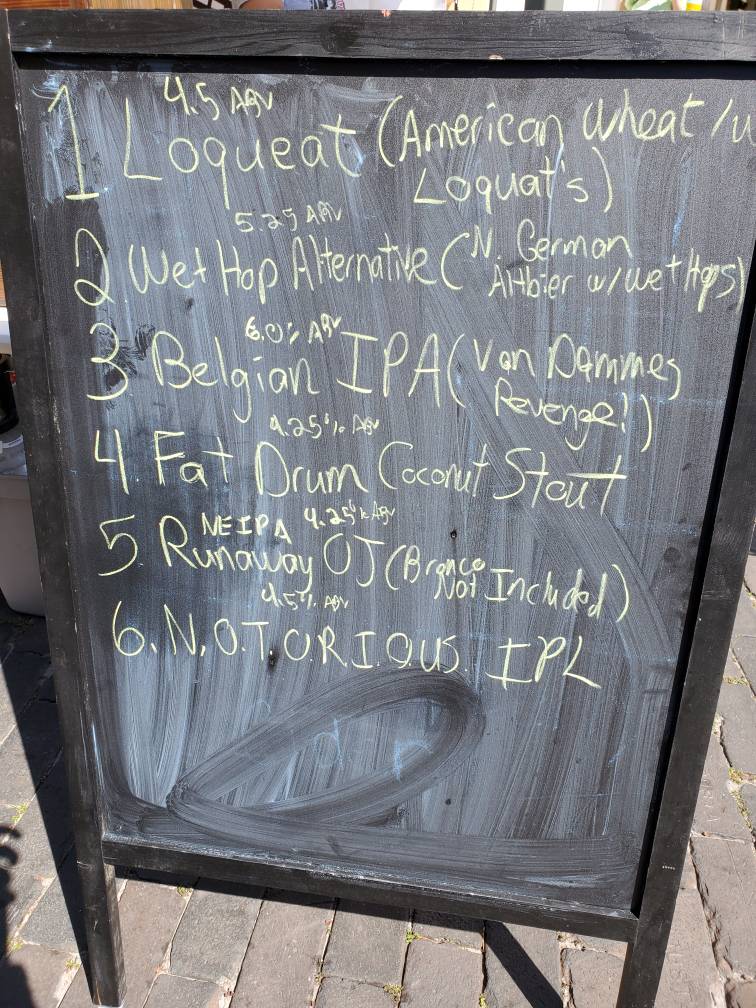 4.5 ABV
1 Loqueat (American Wheat /w
Loquat's)
5.25 ABV
2. Wet Hop Alternative (N. German
Altbier w/ wet Hops)
6.0% ABV
3. Belgian IPA (Van Dammes
Revenge!)
4.25% ABV
4. Fat Drum Coconut Stout
NEIPA 4.25% ABV
5 Runaway OJ (Bronco
Not Included)
4.5% ABV
6. N.O.T.O.R.I.O.U.S. IPL